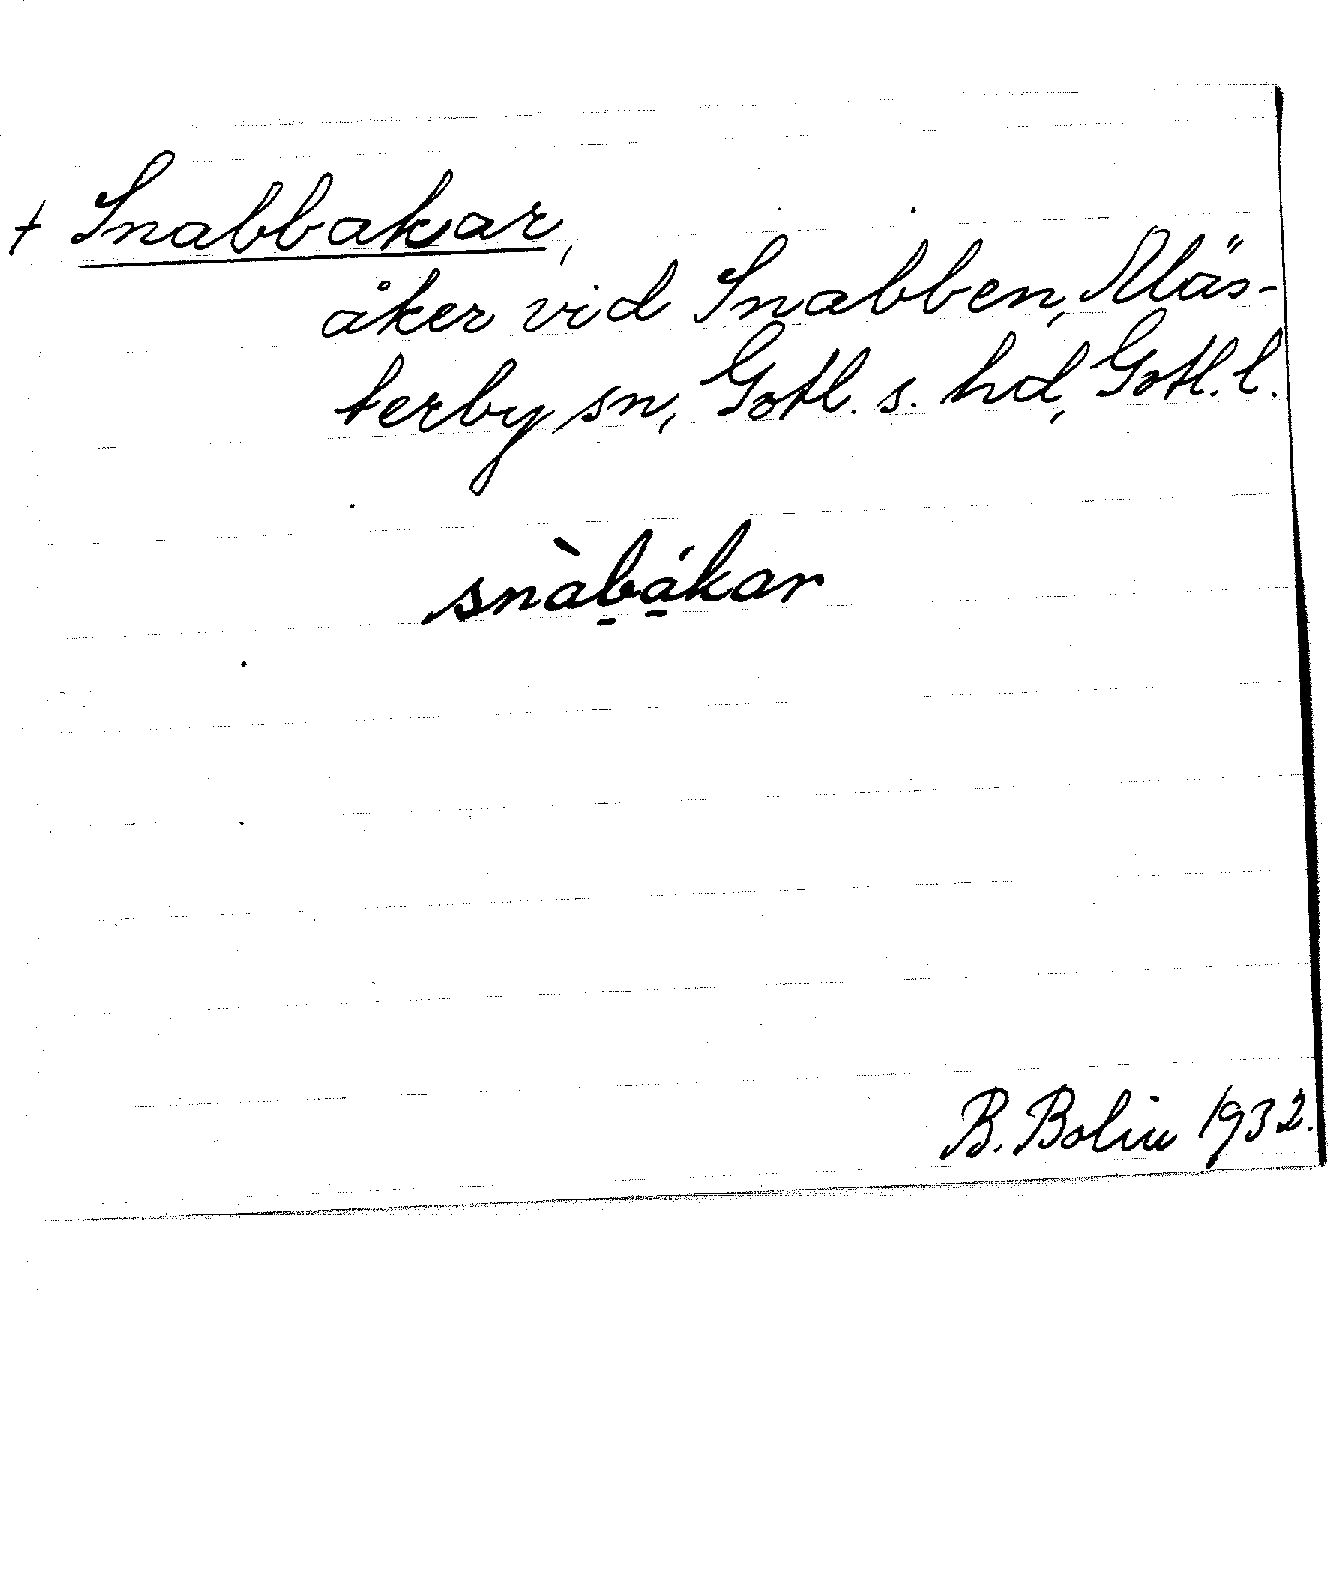 + Snabbakar,
åker vid Snabben, Mäs-
terby sn, Gotl. s. hd, Gotl. l.
snàb̠á̠kar
B. Bolin 1932.